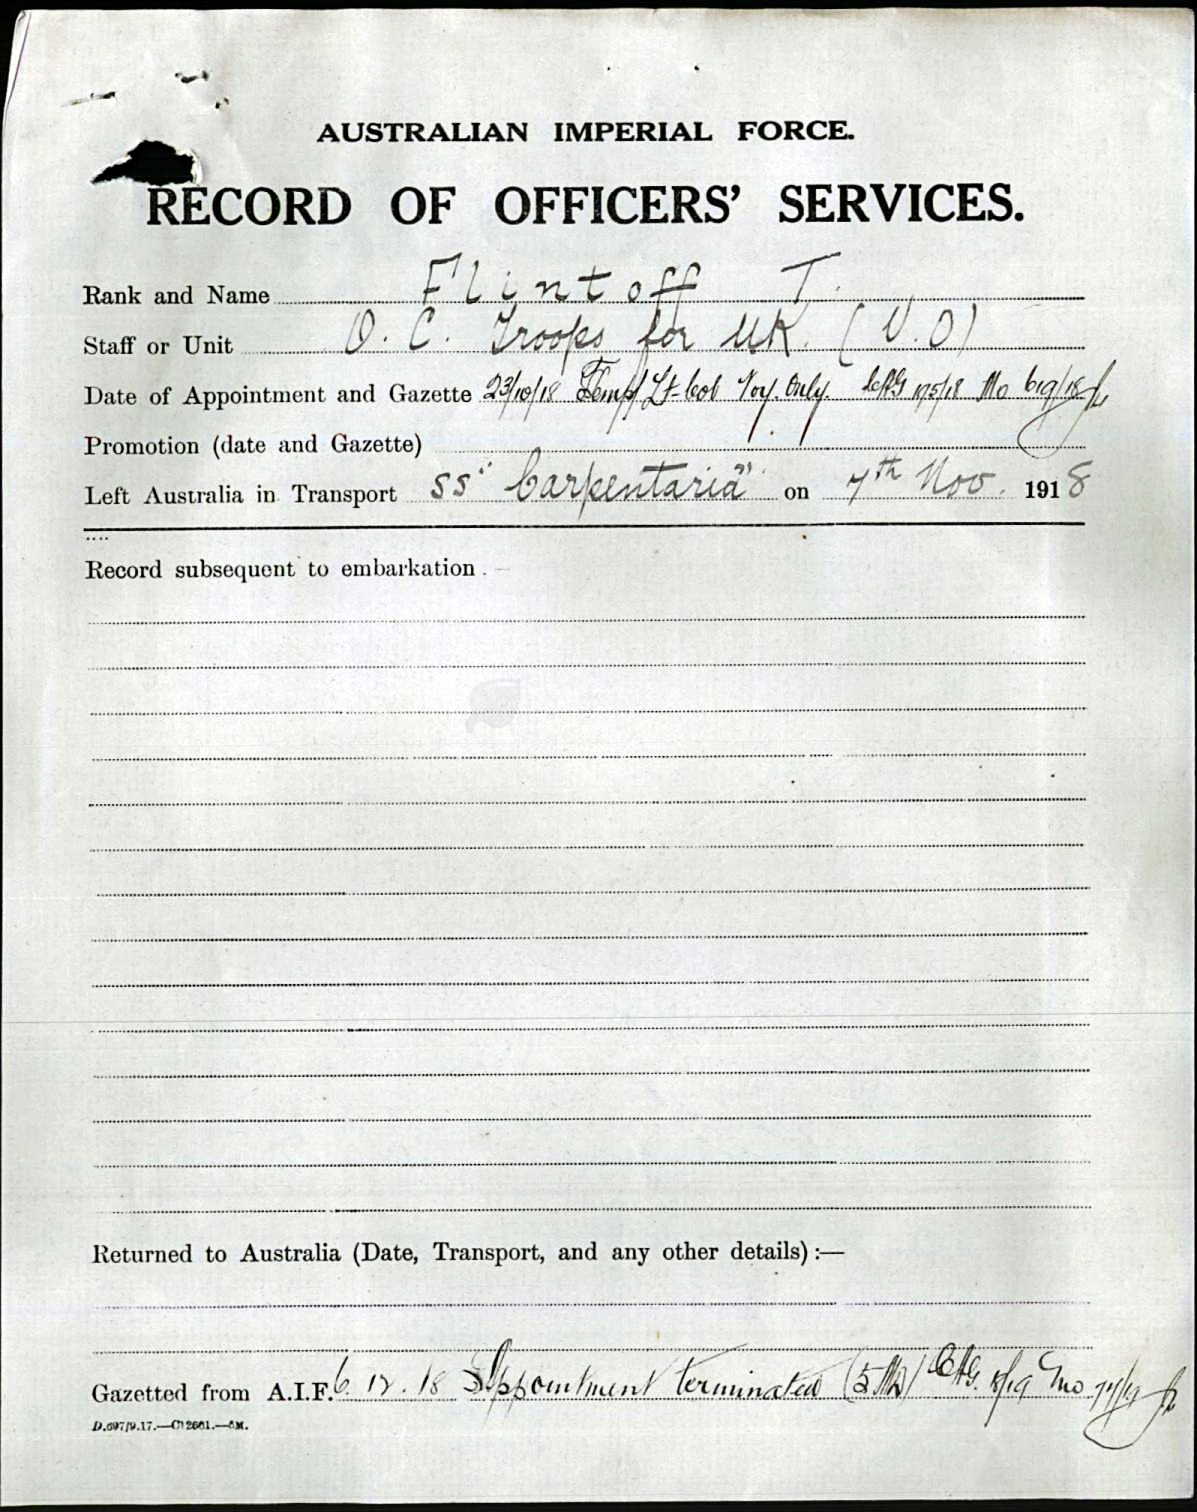 AUSTRALIAN IMPERIAL FORCE.
RECORD OF OFFICERS' SERVICES.
Rank and Name Flintoff T.
Staff or Unit O. C. Troops for UK. (V.O)
Date of Appointment and Gazette 23/10/18 Temp Lt-Col Voy. Only. CAG 195/18 Mo 619/18
Promotion (date and Gazette)
Left Australia in Transport SS "Carpentaria" on 7th Nov. 1918
Record subsequent to embarkation.
Returned to Australia (Date, Transport, and any other details) :—
Gazetted from A.I.F. 6.12.18 Appointment terminated (3 MD) CAG. Mo
D.697/9.17.—C.12661.—5M.